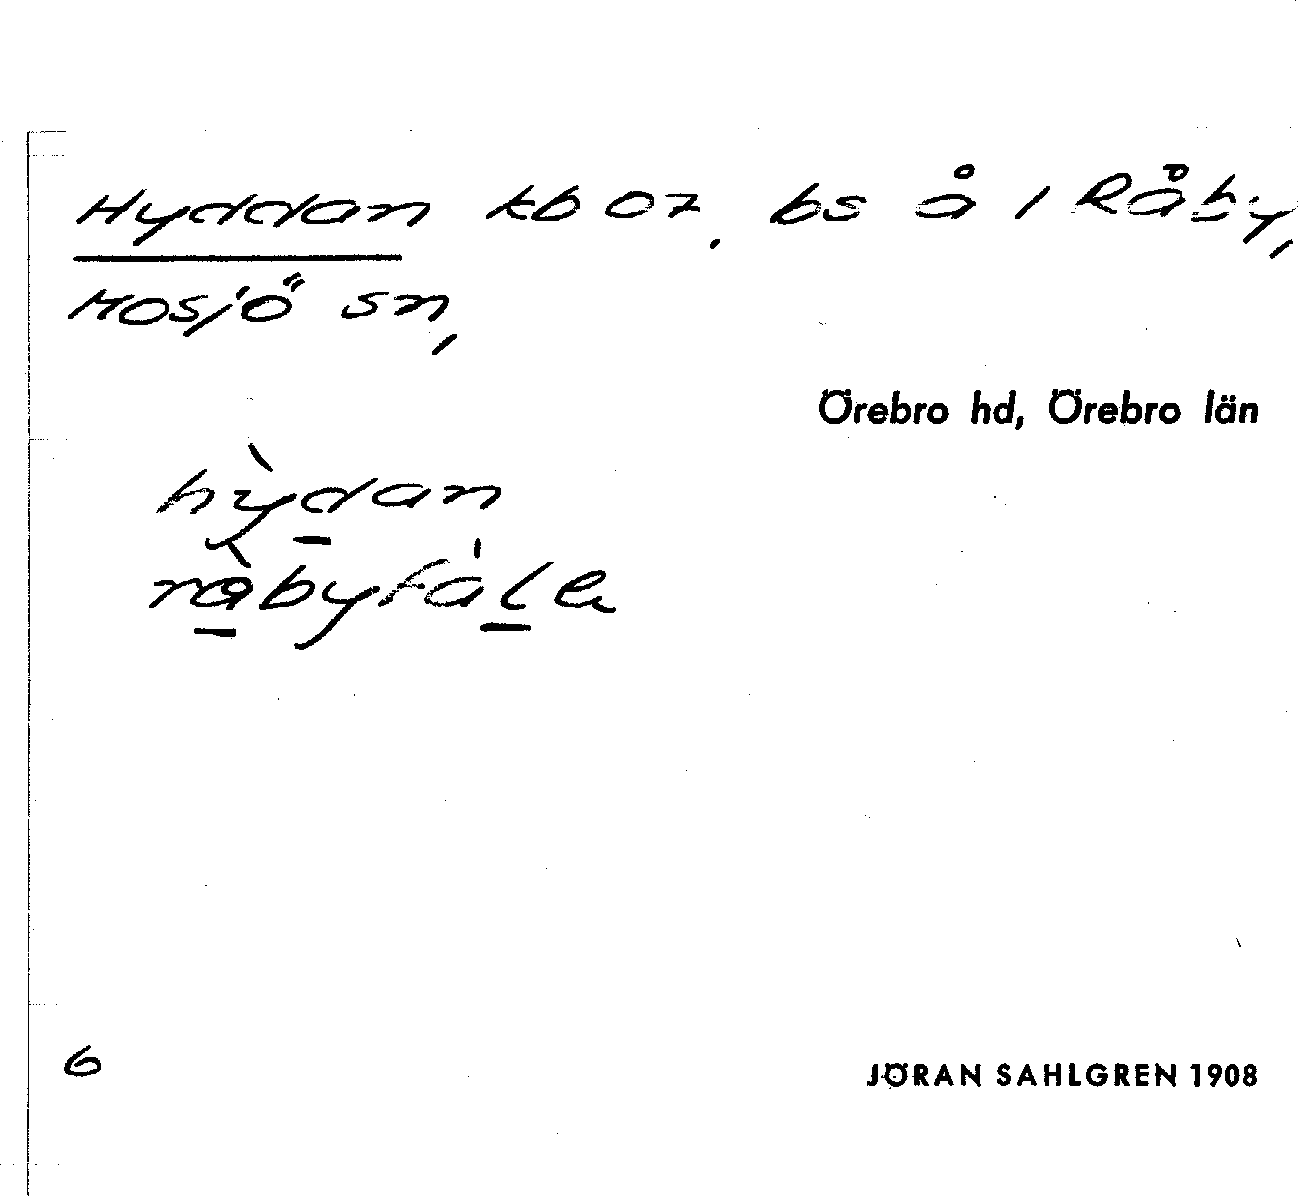 Hyddan kb 07, bs å 1 Råby,
Mosjö sn,
Örebro hd, Örebro län
hỳdan
råbyfàle
6
JÖRAN SAHLGREN 1908